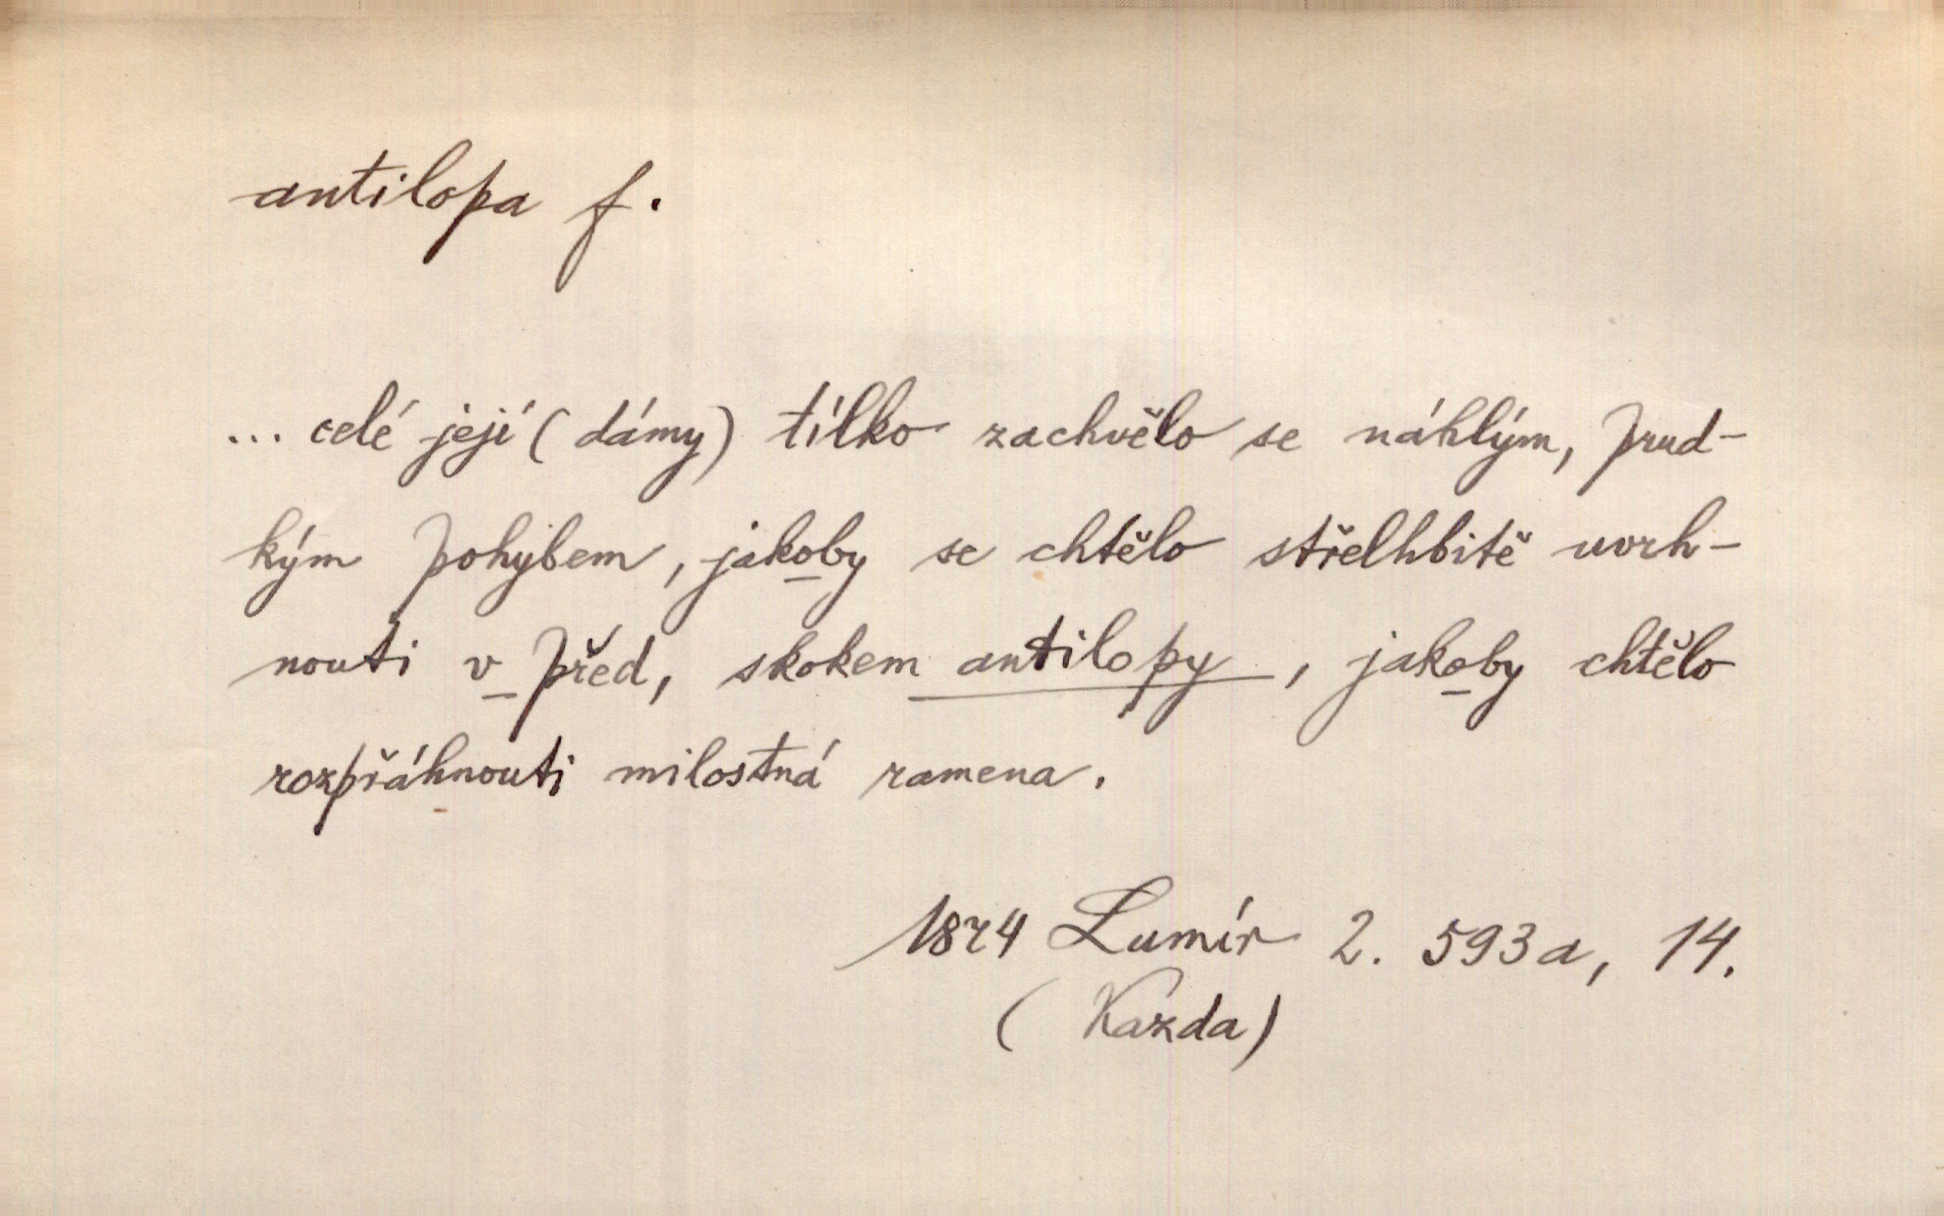 antilopa f.
... celé její (dámy) tílko zachvělo se náhlým, prud-
kým pohybem, jakoby se chtělo střelhbitě uvrh-
nouti v před, skokem antilopy, jakoby chtělo
rozpřáhnouti milostná ramena.
1874 Lumír 2. 593a, 14.
(Kazda)